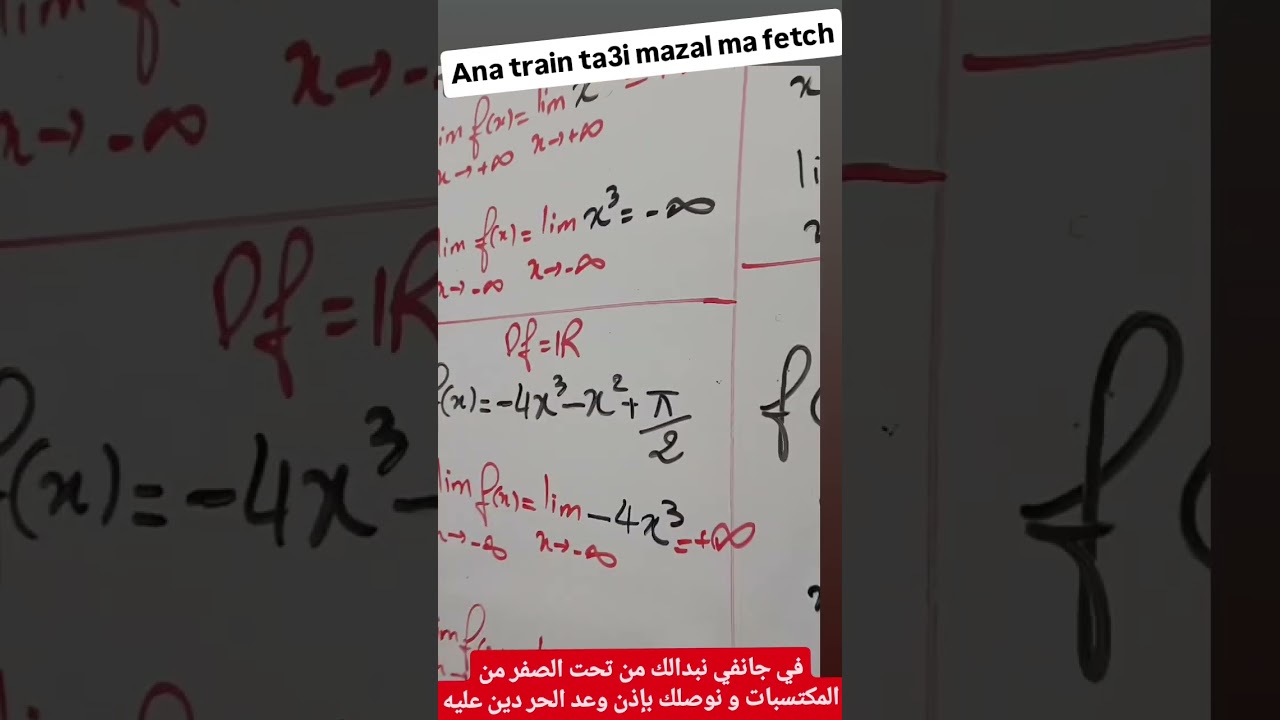 Ana train ta3i mazal ma fetch
lim f(x) = lim x
x→+∞ x→+∞
lim f(x) = lim x³ = -∞
x→-∞ x→-∞
Df = IR
f(x) = -4x³ - x² + π/2
lim f(x) = lim -4x³ = +∞
x→-∞ x→-∞
في جانفي نبدالك من تحت الصفر من
المكتسبات و نوصلك بإذن وعد الحر دين عليه